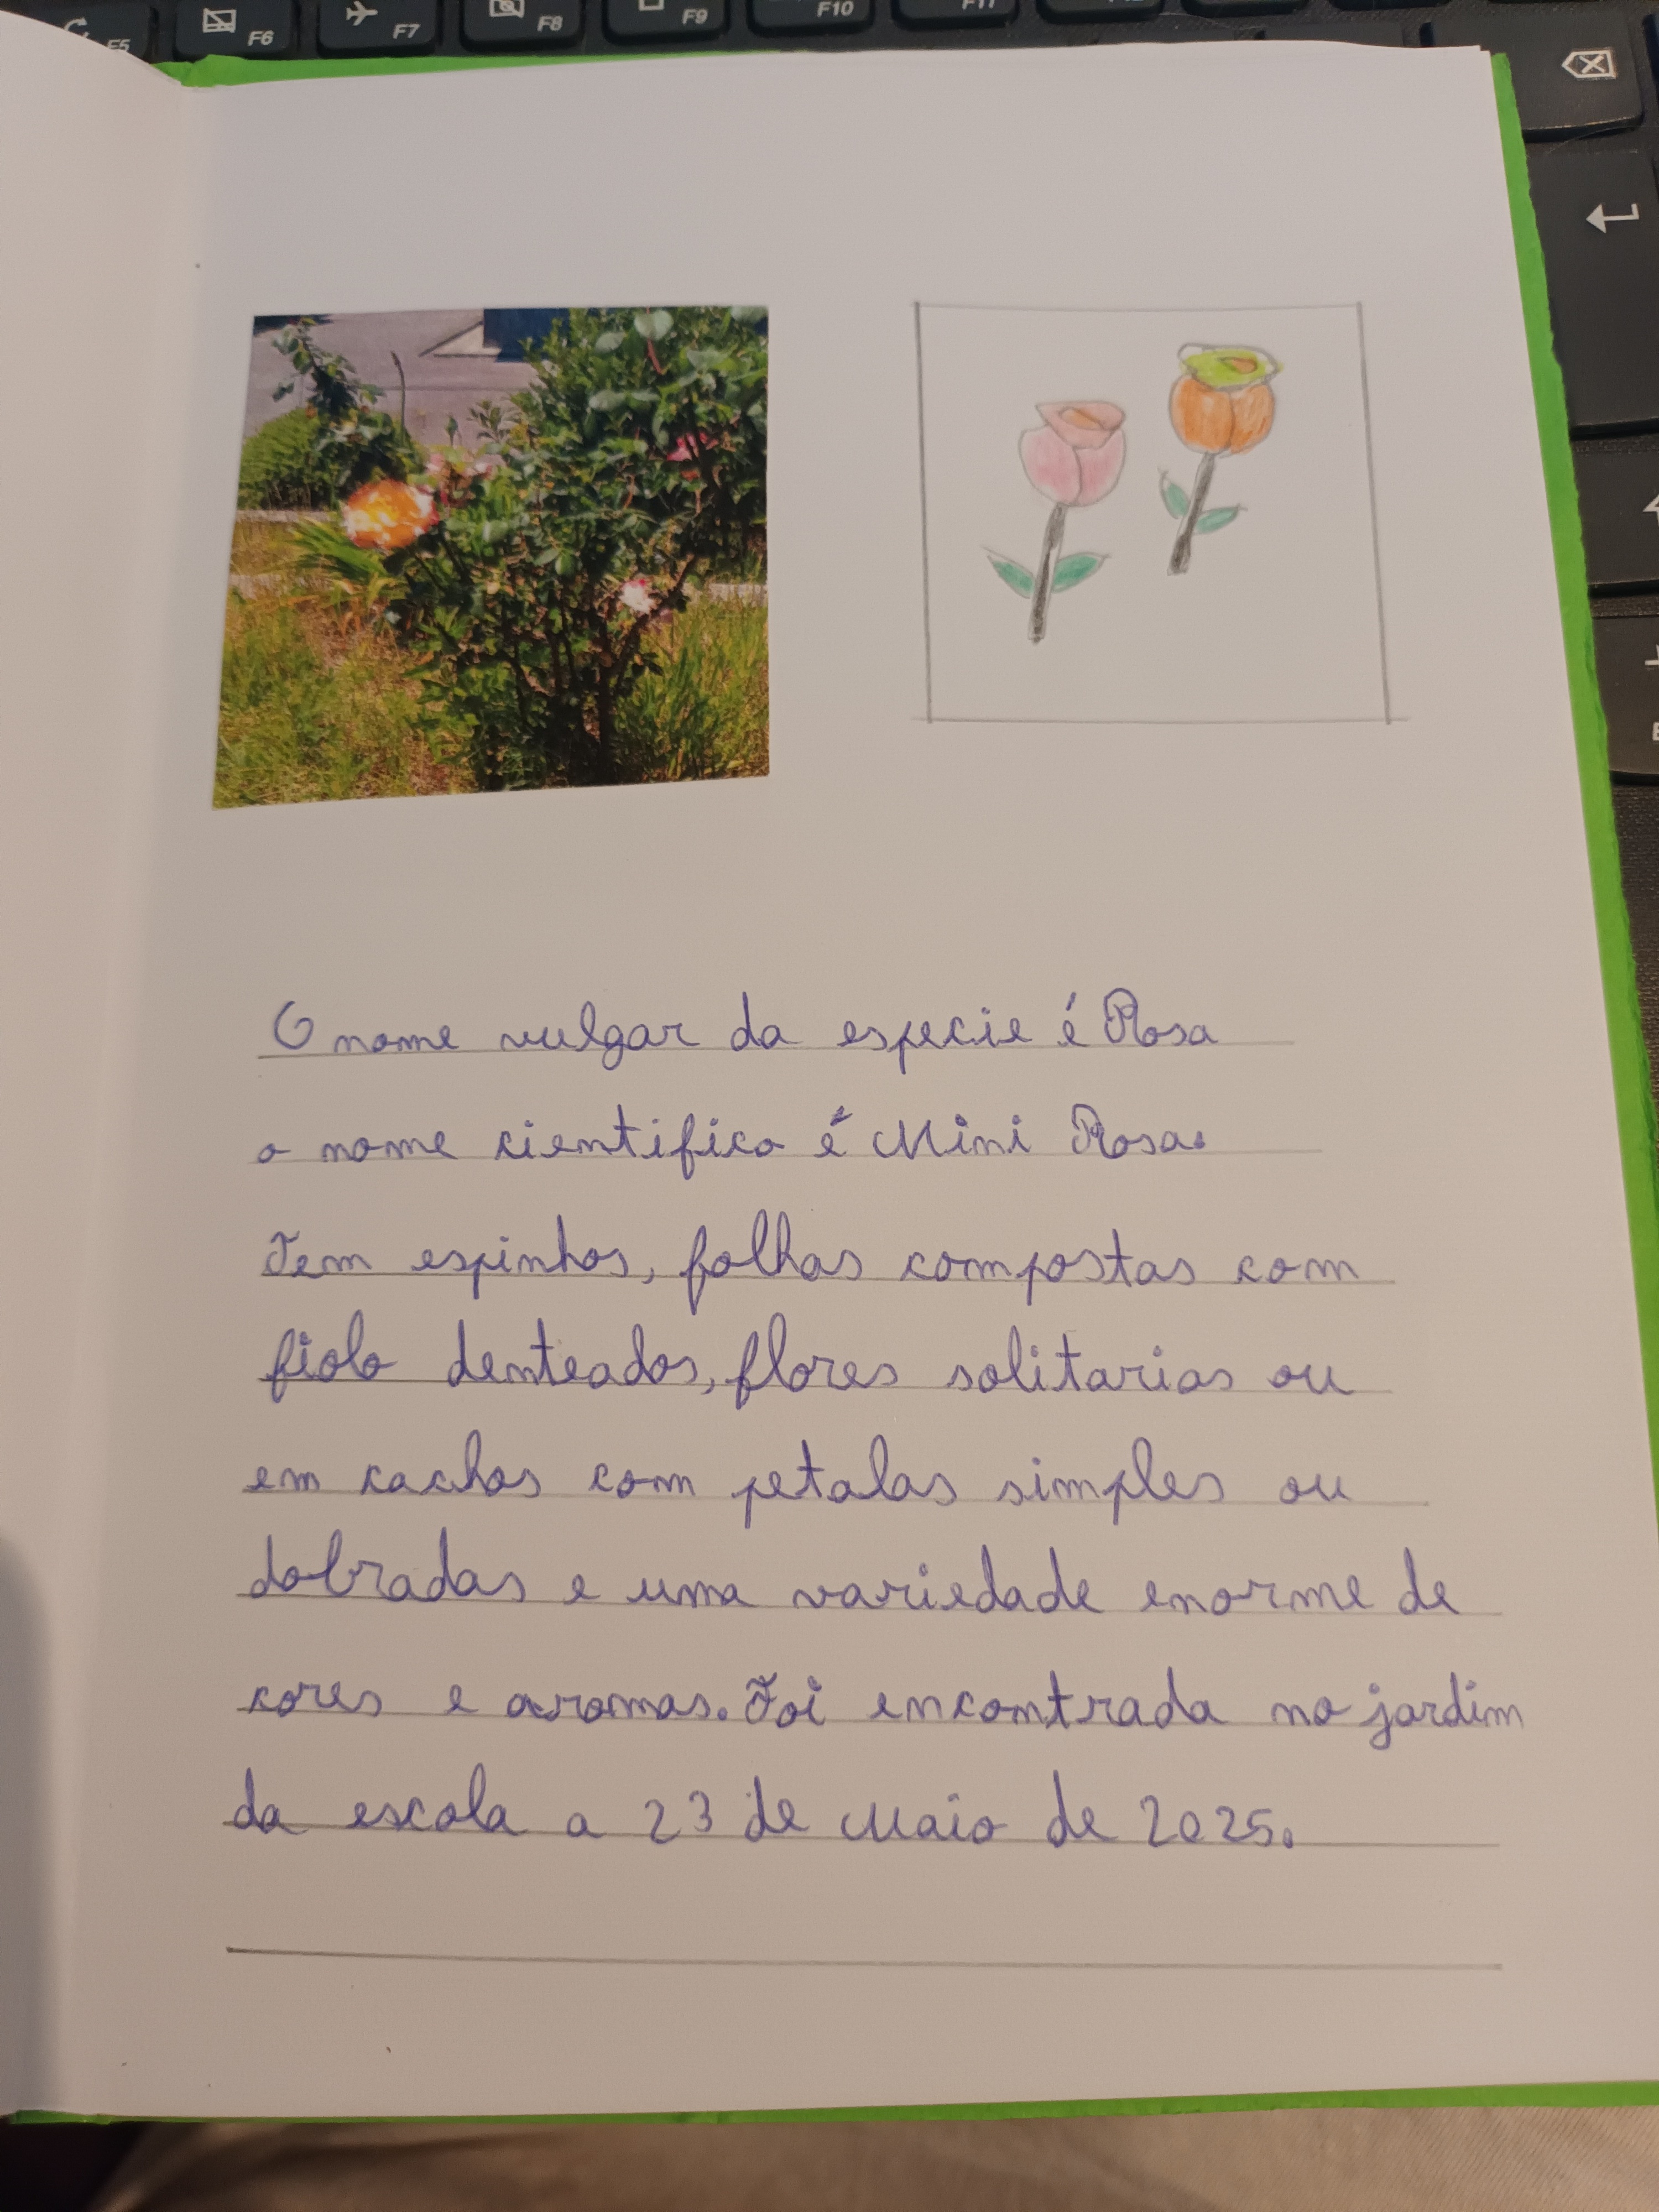 F5 F6 F7 F8 F9 F10 F11
O nome vulgar da especie é Rosa
o nome cientifico é Mini Rosa.
Tem espinhos, folhas compostas com
fiolo denteados, flores solitarias ou
em cachos com petalas simples ou
dobradas e uma variedade enorme de
cores e aromas. Foi encontrada no jardim
da escola a 23 de Maio de 2025.